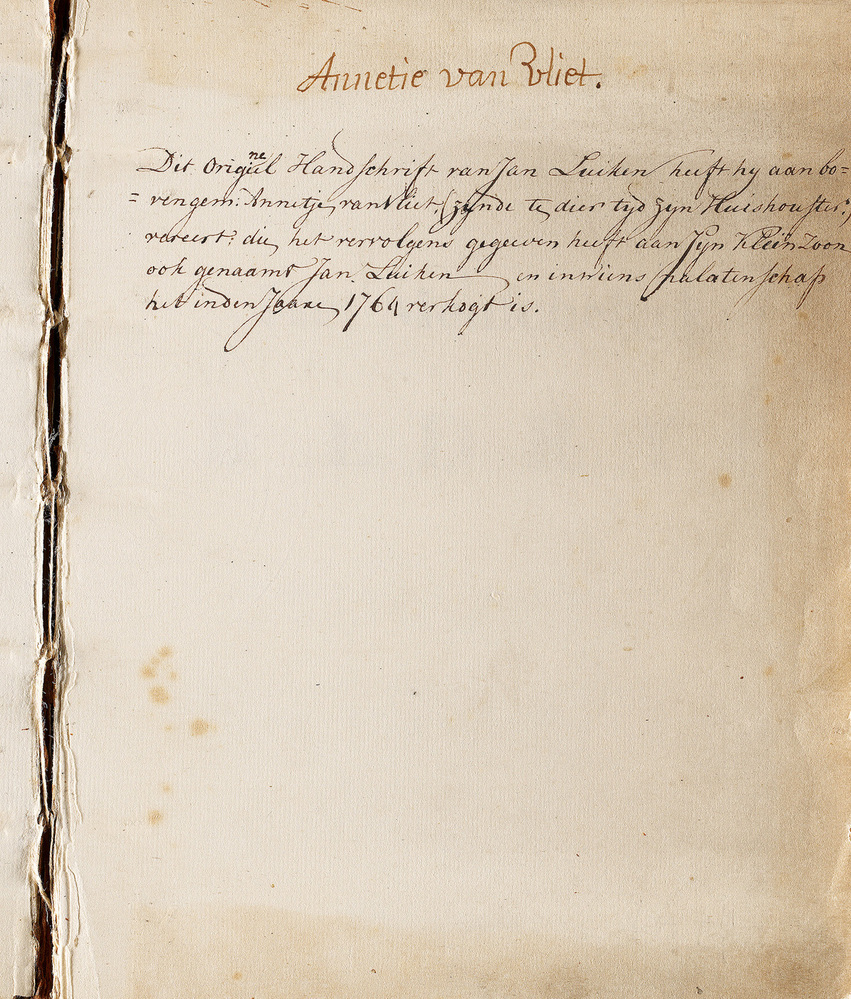 Annetie van Vliet.
Dit Origineel Handschrift van Jan Luiken heeft hy aan bo=
=vengem: Annetje van Vliet, (zynde te dier tyd zyn Huishoudster.)
vereert: die het vervolgens gegeeven heeft aan Zyn Klein Zoon
ook genaamt Jan Luiken en in wiens nalatenschap
het in den Jaare 1764 verkogt is.